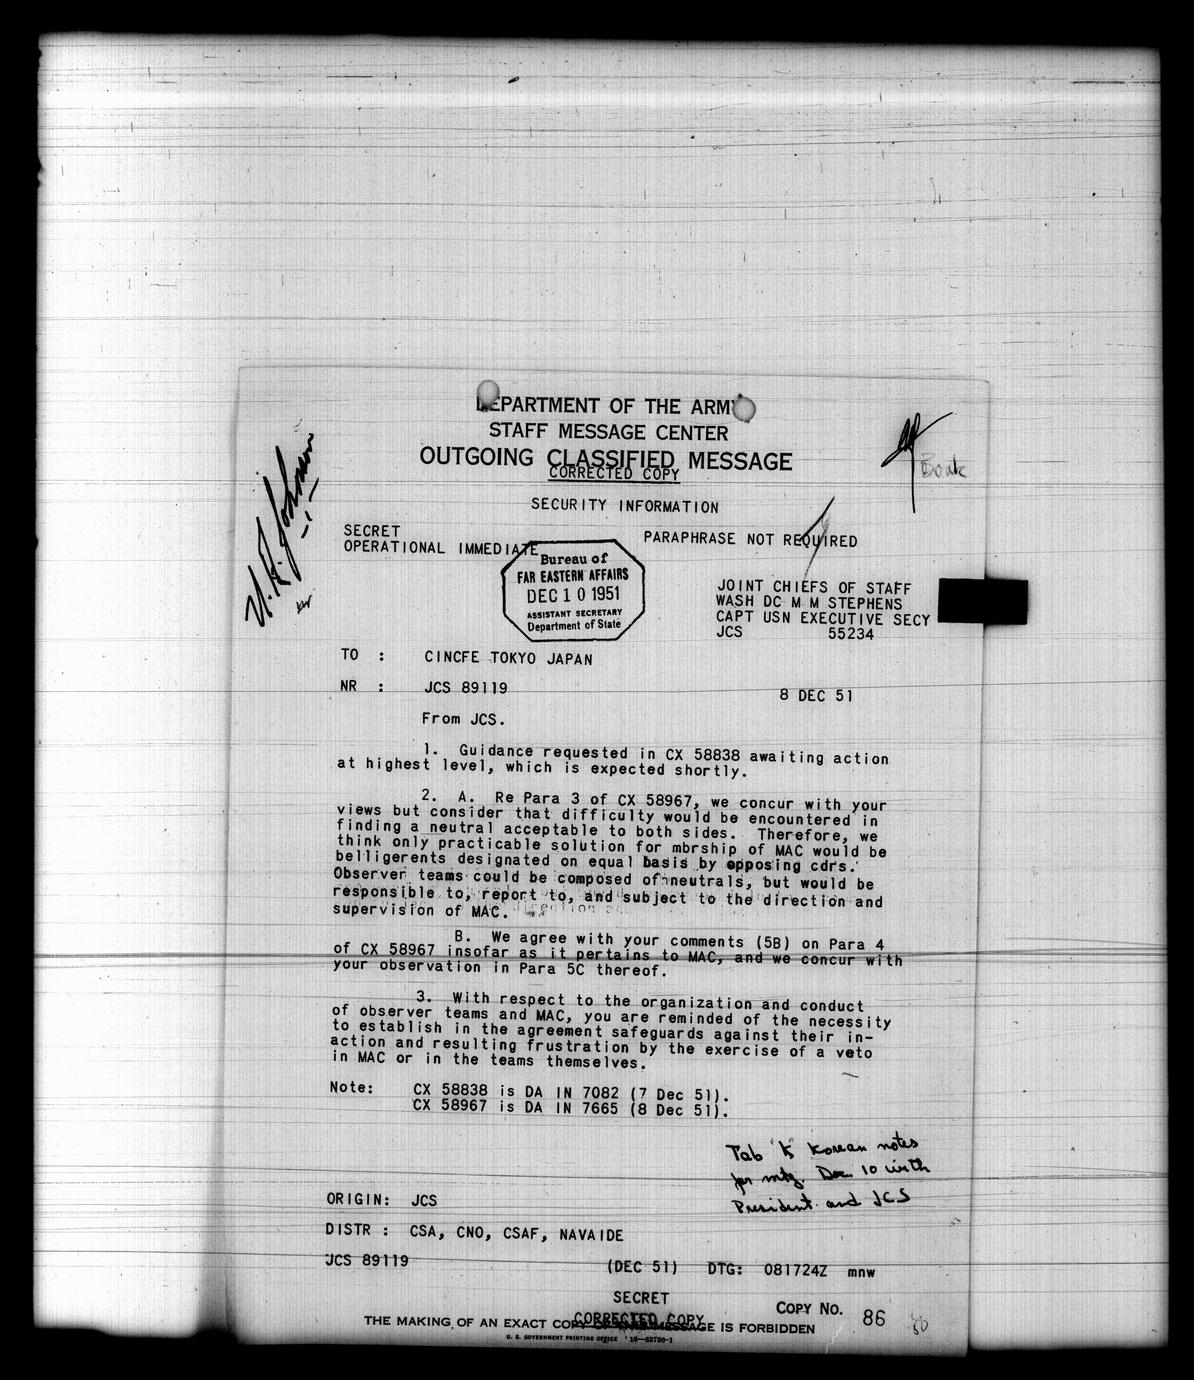 DEPARTMENT OF THE ARMY
STAFF MESSAGE CENTER
OUTGOING CLASSIFIED MESSAGE
CORRECTED COPY
U. A. Johnson
SECURITY INFORMATION
SECRET
OPERATIONAL IMMEDIATE
PARAPHRASE NOT REQUIRED
Bureau of
FAR EASTERN AFFAIRS
DEC 10 1951
ASSISTANT SECRETARY
Department of State
JOINT CHIEFS OF STAFF
WASH DC M M STEPHENS
CAPT USN EXECUTIVE SECY
JCS 55234
TO : CINCFE TOKYO JAPAN
NR : JCS 89119 8 DEC 51
From JCS.
1. Guidance requested in CX 58838 awaiting action
at highest level, which is expected shortly.
2. A. Re Para 3 of CX 58967, we concur with your
views but consider that difficulty would be encountered in
finding a neutral acceptable to both sides. Therefore, we
think only practicable solution for mbrship of MAC would be
belligerents designated on equal basis by opposing cdrs.
Observer teams could be composed of neutrals, but would be
responsible to, report to, and subject to the direction and
supervision of MAC.
B. We agree with your comments (5B) on Para 4
of CX 58967 insofar as it pertains to MAC, and we concur with
your observation in Para 5C thereof.
3. With respect to the organization and conduct
of observer teams and MAC, you are reminded of the necessity
to establish in the agreement safeguards against their in-
action and resulting frustration by the exercise of a veto
in MAC or in the teams themselves.
Note: CX 58838 is DA IN 7082 (7 Dec 51).
CX 58967 is DA IN 7665 (8 Dec 51).
Tab "K" Korean notes
for mtg. Dec. 10 with
President and JCS
ORIGIN: JCS
DISTR : CSA, CNO, CSAF, NAVAIDE
JCS 89119 (DEC 51) DTG: 081724Z mnw
SECRET
COPY NO. 86
CORRECTED COPY
THE MAKING OF AN EXACT COPY OF THIS MESSAGE IS FORBIDDEN
U. S. GOVERNMENT PRINTING OFFICE 16—53736-1